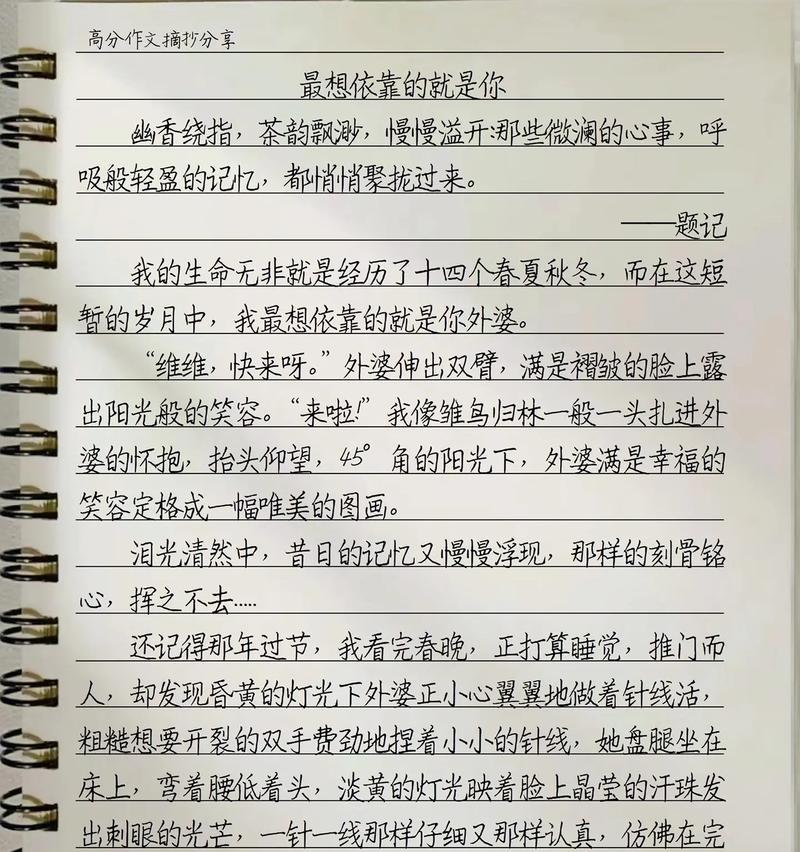 高分作文摘抄分享
最想依靠的就是你
幽香绕指，茶韵飘渺，慢慢溢开：那些微澜的心事，呼
吸般轻盈的记忆，都悄悄聚拢过来。
——题记
我的生命无非就是经历了十四个春夏秋冬，而在这短
暂的岁月中，我最想依靠的就是你外婆。
“维维，快来呀。”外婆伸出双臂，满是褶皱的脸上露
出阳光般的笑容。“来啦！”我像雏鸟归林一般一头扎进外
婆的怀抱，抬头仰望，45°角的阳光下，外婆满是幸福的
笑容定格成一幅唯美的图画。
泪光清然中，昔日的记忆又慢慢浮现，那样的刻骨铭
心，挥之不去……
还记得那年过节，我看完春晚，正打算睡觉，推门而
人，却发现昏黄的灯光下外婆正小心翼翼地做着针线活，
粗糙想要开裂的双手费劲地捏着小小的针线，她盘腿坐在
床上，弯着腰低着头，淡黄的灯光映着脸上晶莹的汗珠发
出刺眼的光芒，一针一线那样仔细又那样认真，仿佛在完